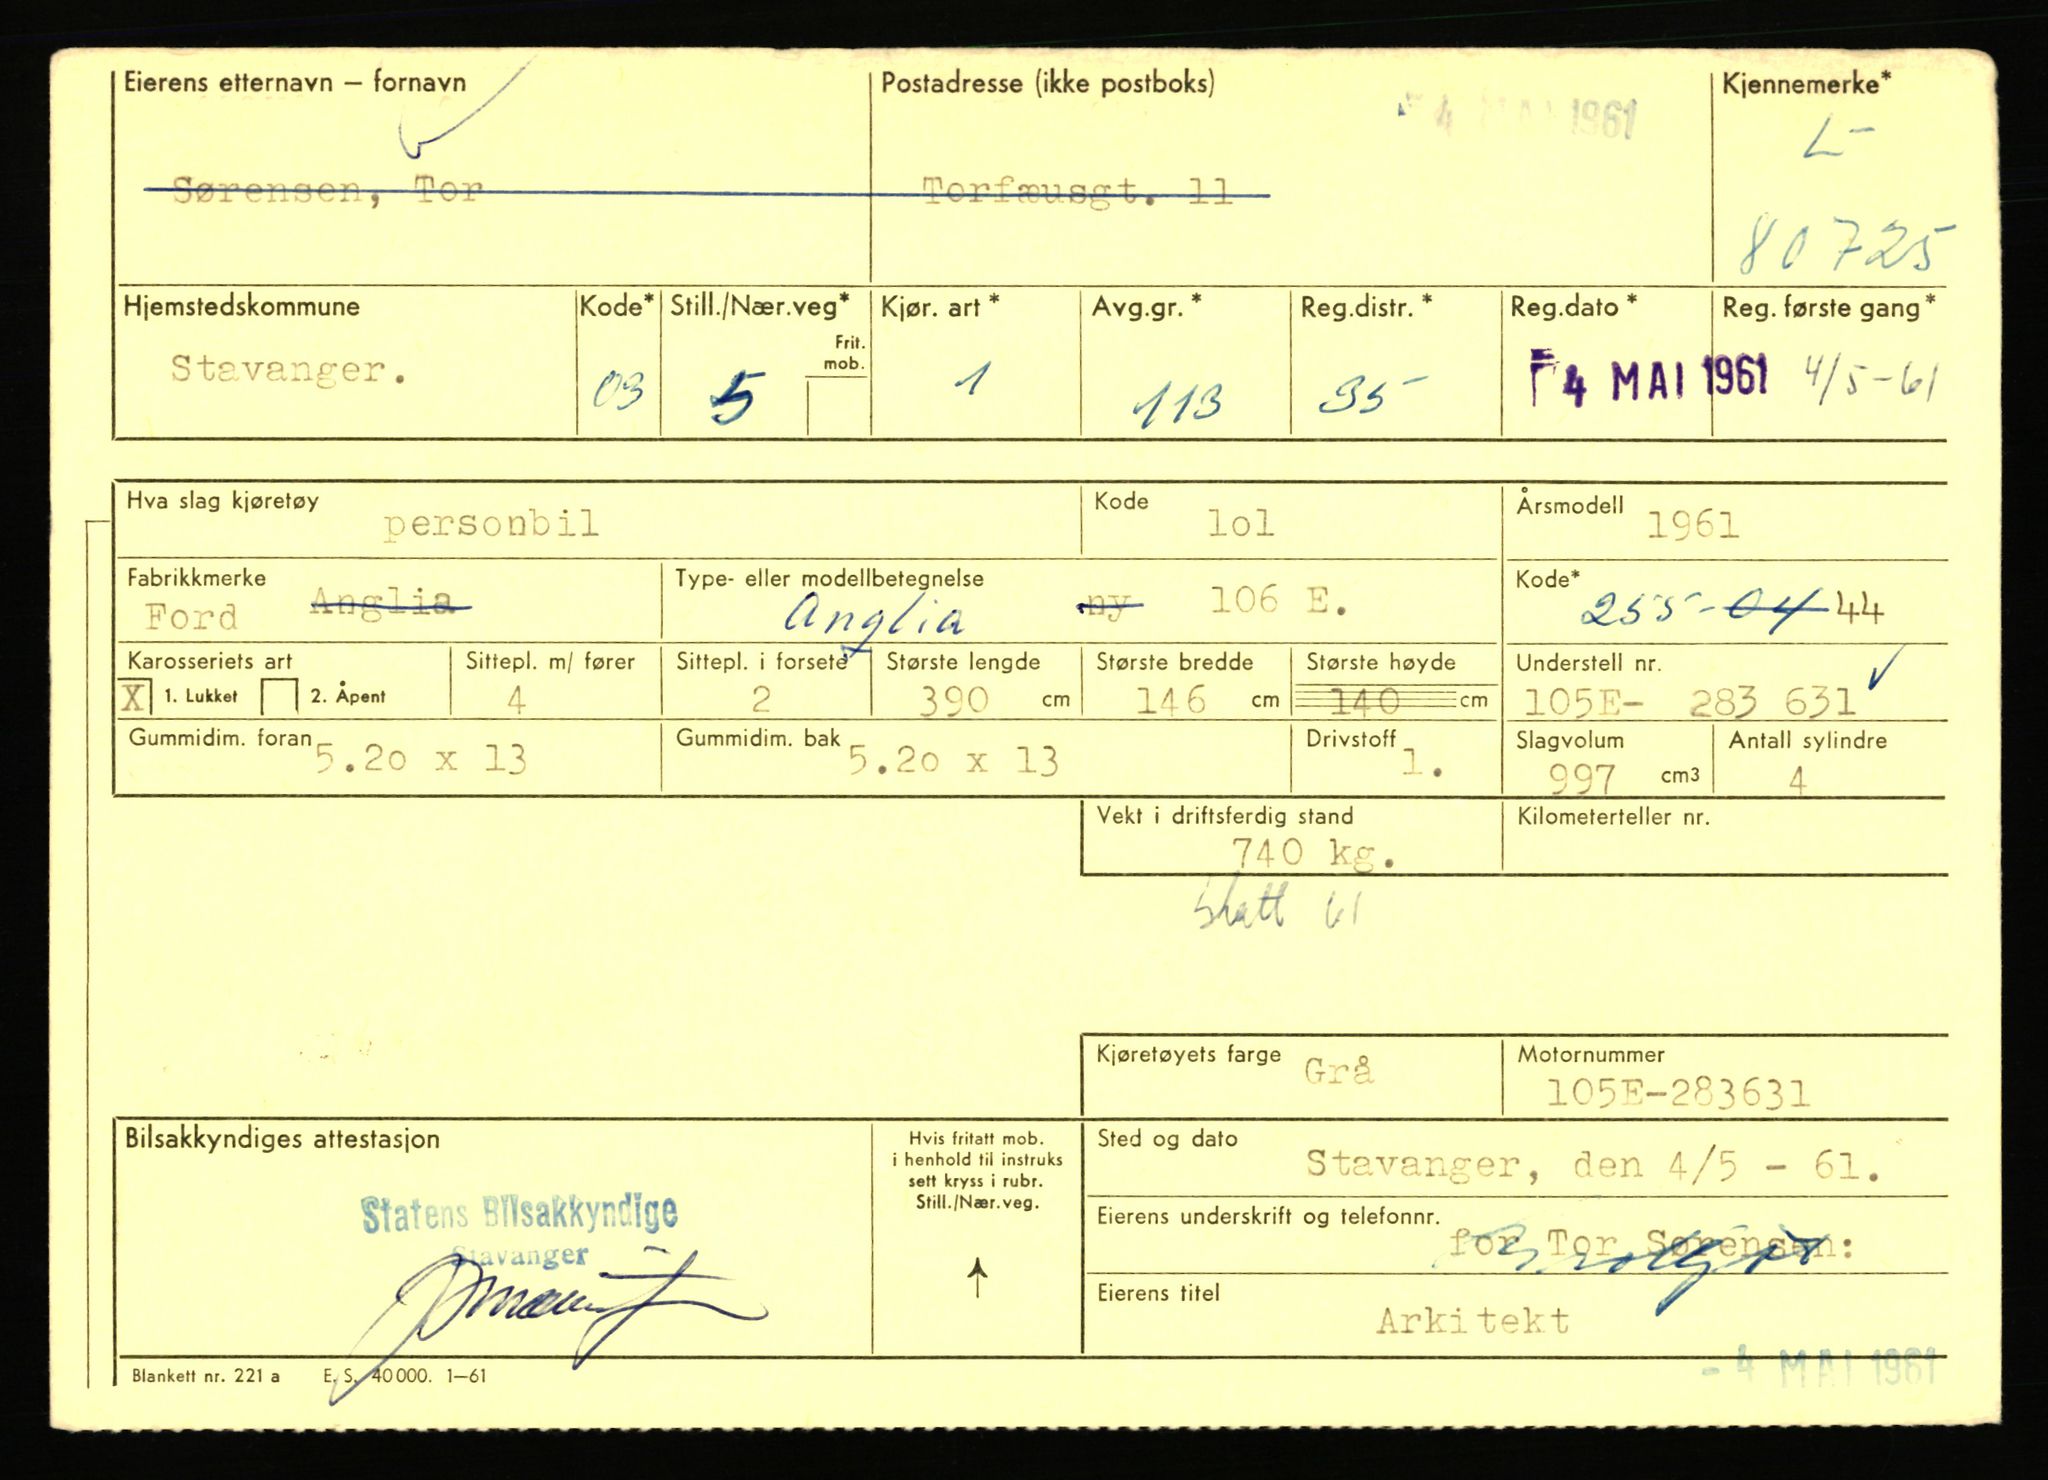 Eierens etternavn – fornavn Postadresse (ikke postboks) Kjennemerke*
4 MAI 1961
L-
Sørensen, Tor Torfæusgt. 11
80725
Hjemstedskommune Kode* Still./Nær.veg* Kjør. art* Avg.gr.* Reg.distr.* Reg.dato* Reg. første gang*
Frit.
mob.
Stavanger. 03 5 1 113 35 4 MAI 1961 4/5-61
Hva slag kjøretøy personbil Kode 1o1 Årsmodell 1961
Fabrikkmerke Type- eller modellbetegnelse Kode*
Ford Anglia Anglia ny 106 E. 255-04 44
Karosseriets art Sittepl. m/ fører Sittepl. i forsete Største lengde Største bredde Største høyde Understell nr.
X 1. Lukket 2. Åpent 4 2 390 cm 146 cm 140 cm 105E- 283 631
Gummidim. foran Gummidim. bak Drivstoff Slagvolum Antall sylindre
5.2o x 13 5.2o x 13 1. 997 cm3 4
Vekt i driftsferdig stand Kilometerteller nr.
740 kg.
61
Kjøretøyets farge Grå Motornummer
105E-283631
Bilsakkyndiges attestasjon
Hvis fritatt mob.
i henhold til instruks
sett kryss i rubr.
Still./Nær.veg.
Sted og dato
Stavanger, den 4/5 - 61.
Statens Bilsakkyndige
Stavanger
Eierens underskrift og telefonnr.
for Tor Sørensen:
Eierens titel
Arkitekt
Blankett nr. 221 a E. S. 40 000. 1–61
- 4 MAI 1961